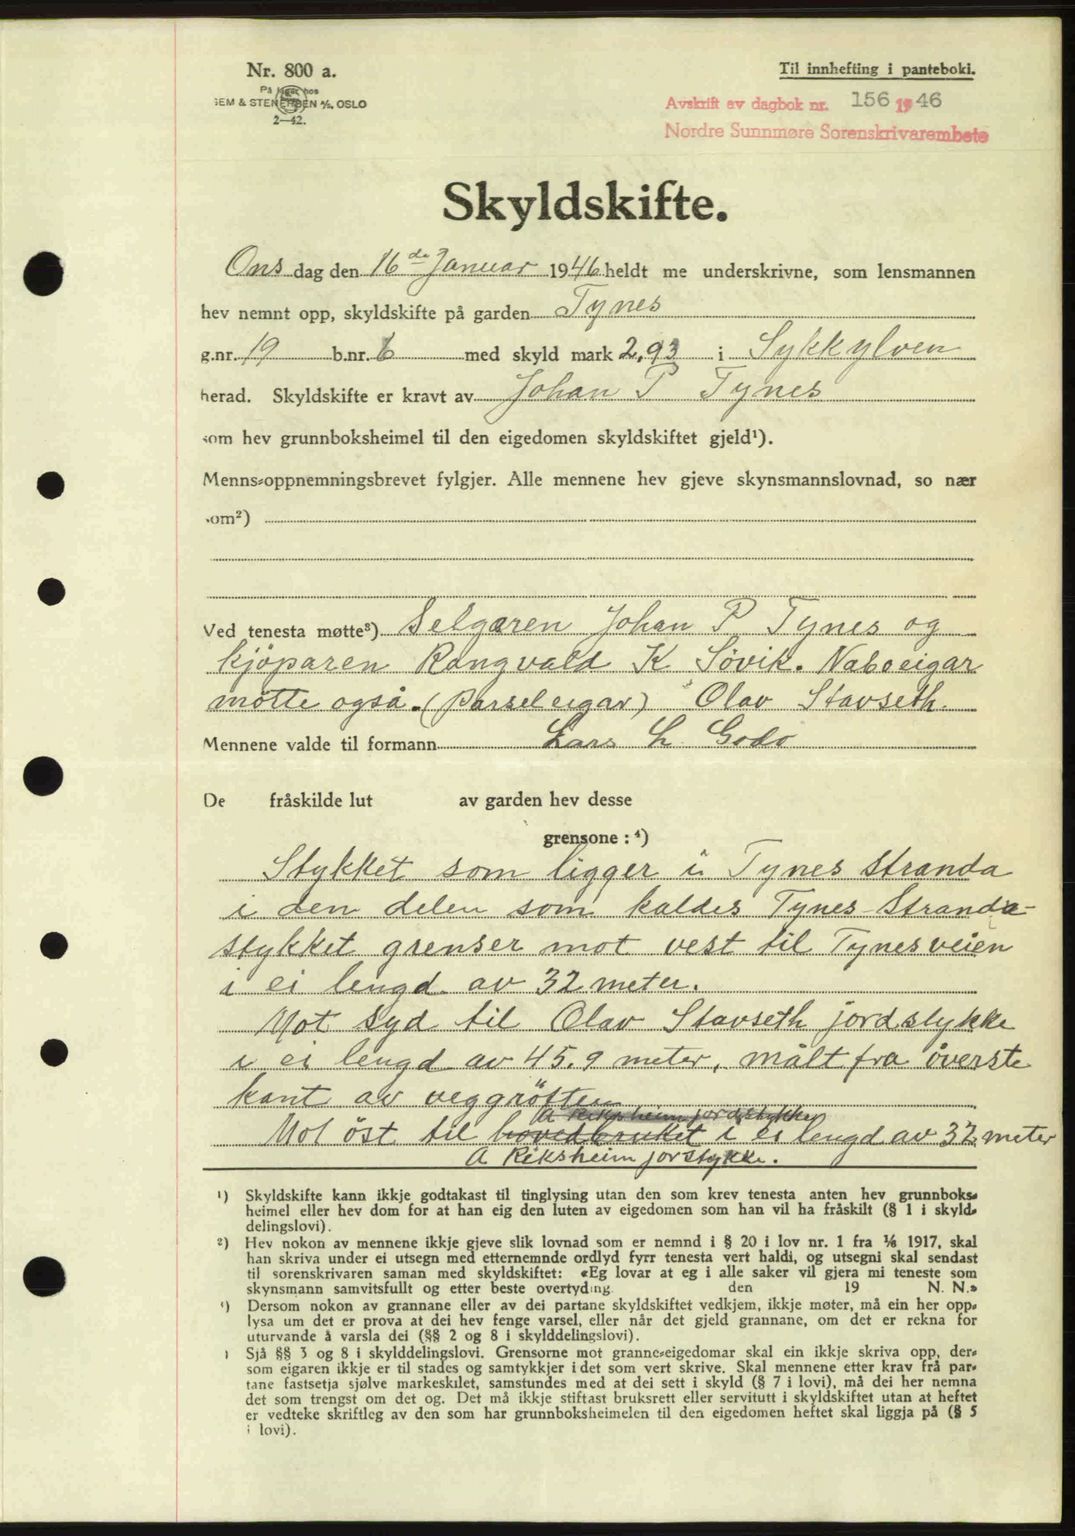 Nr. 800 a.
Til innhefting i panteboki.
På lager hos
SEM & STENERSEN A/S, OSLO
2—42.
Avskrift av dagbok nr. 156 1946
Nordre Sunnmøre Sorenskrivarembete
Skyldskifte.
Ons dag den 16de Januar 1946 heldt me underskrivne, som lensmannen
hev nemnt opp, skyldskifte på garden Tynes
g.nr. 19 b.nr. 6 med skyld mark 2,93 i Sykkylven
herad. Skyldskifte er kravt av Johan P Tynes
som hev grunnboksheimel til den eigedomen skyldskiftet gjeld¹).
Menns-oppnemningsbrevet fylgjer. Alle mennene hev gjeve skynsmannslovnad, so nær
som²)
Ved tenesta møtte³) Selgaren Johan P Tynes og
kjöparen Rangvald K Sövik. Naboeigar
mötte også. (Parseleigar) Olav Stavseth.
Mennene valde til formann Lars L. Godö
De fråskilde lut av garden hev desse
grensone : ⁴)
Stykket som ligger i Tynes Stranda
i den delen som kaldes Tynes-Stranda-
stykket grenser mot vest til Tynesveien
i ei lengd av 32 meter.
Mot syd til Olav Stavseth jordstykke
i ei lengd av 45.9 meter, målt fra överste
kant av veggröften
A Riksheim jordstykke
Mot öst til hovedbruket i ei lengd av 32 meter
A Riksheim jorstykke.
¹) Skyldskifte kann ikkje godtakast til tinglysing utan den som krev tenesta anten hev grunnboks-
heimel eller hev dom for at han eig den luten av eigedomen som han vil ha fråskilt (§ 1 i skyld-
delingslovi).
²) Hev nokon av mennene ikkje gjeve slik lovnad som er nemnd i § 20 i lov nr. 1 fra ⅙ 1917, skal
han skriva under ei utsegn med etternemnde ordlyd fyrr tenesta vert haldi, og utsegni skal sendast
til sorenskrivaren saman med skyldskiftet: «Eg lovar at eg i alle saker vil gjera mi teneste som
skynsmann samvitsfullt og etter beste overtyding. den 19 N. N.»
³) Dersom nokon av grannane eller av dei partane skyldskiftet vedkjem, ikkje møter, må ein her opp-
lysa um det er prova at dei hev fenge varsel, eller når det gjeld grannane, om det er rekna for
uturvande å varsla dei (§§ 2 og 8 i skylddelingslovi).
) Sjå §§ 3 og 8 i skylddelingslovi. Grensorne mot granne-eigedomar skal ein ikkje skriva opp, der-
som eigaren ikkje er til stades og samtykkjer i det som vert skrive. Skal mennene etter krav frå par-
tane fastsetja sjølve markeskilet, samstundes med at dei sett i skyld (§ 7 i lovi), må dei her nemna
det som trengst om det og. Det må ikkje stiftast bruksrett eller servitutt i skyldskiftet utan at heftet
er vedteke skriftleg av den som har grunnboksheimelen til den eigedomen heftet skal liggja på (§ 5
i lovi).